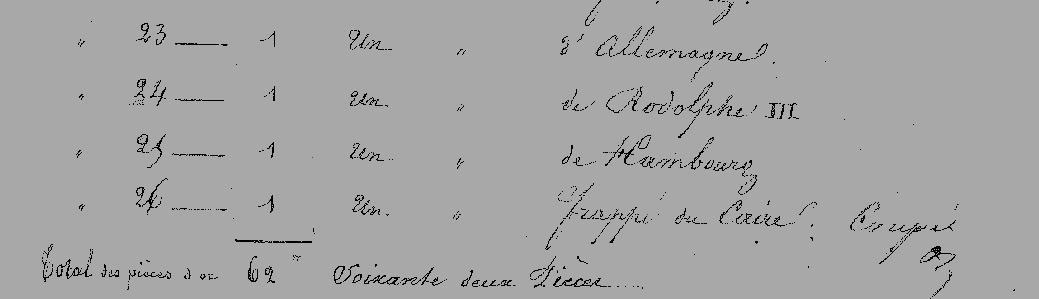 " 23 — 1 Un " d'Allemagne.
" 24 — 1 Un " de Rodolphe III
" 25 — 1 Un " de Hambourg
" 26 — 1 Un. " frappé au Caire. Coupé
Total des pièces d'or 62 " Soixante deux Pièces